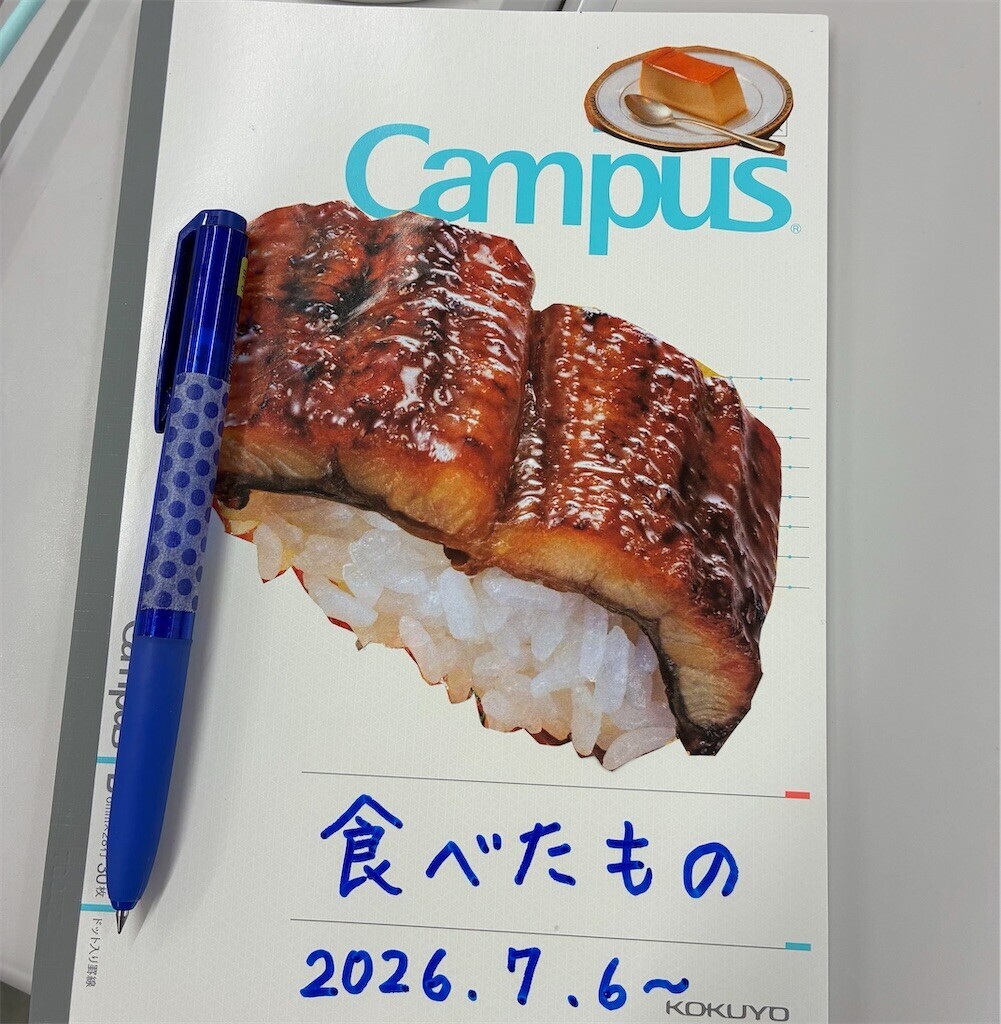 Campus®
食べたもの
2026.7.6~
KOKUYO
Campus
30枚
ドット入り罫線